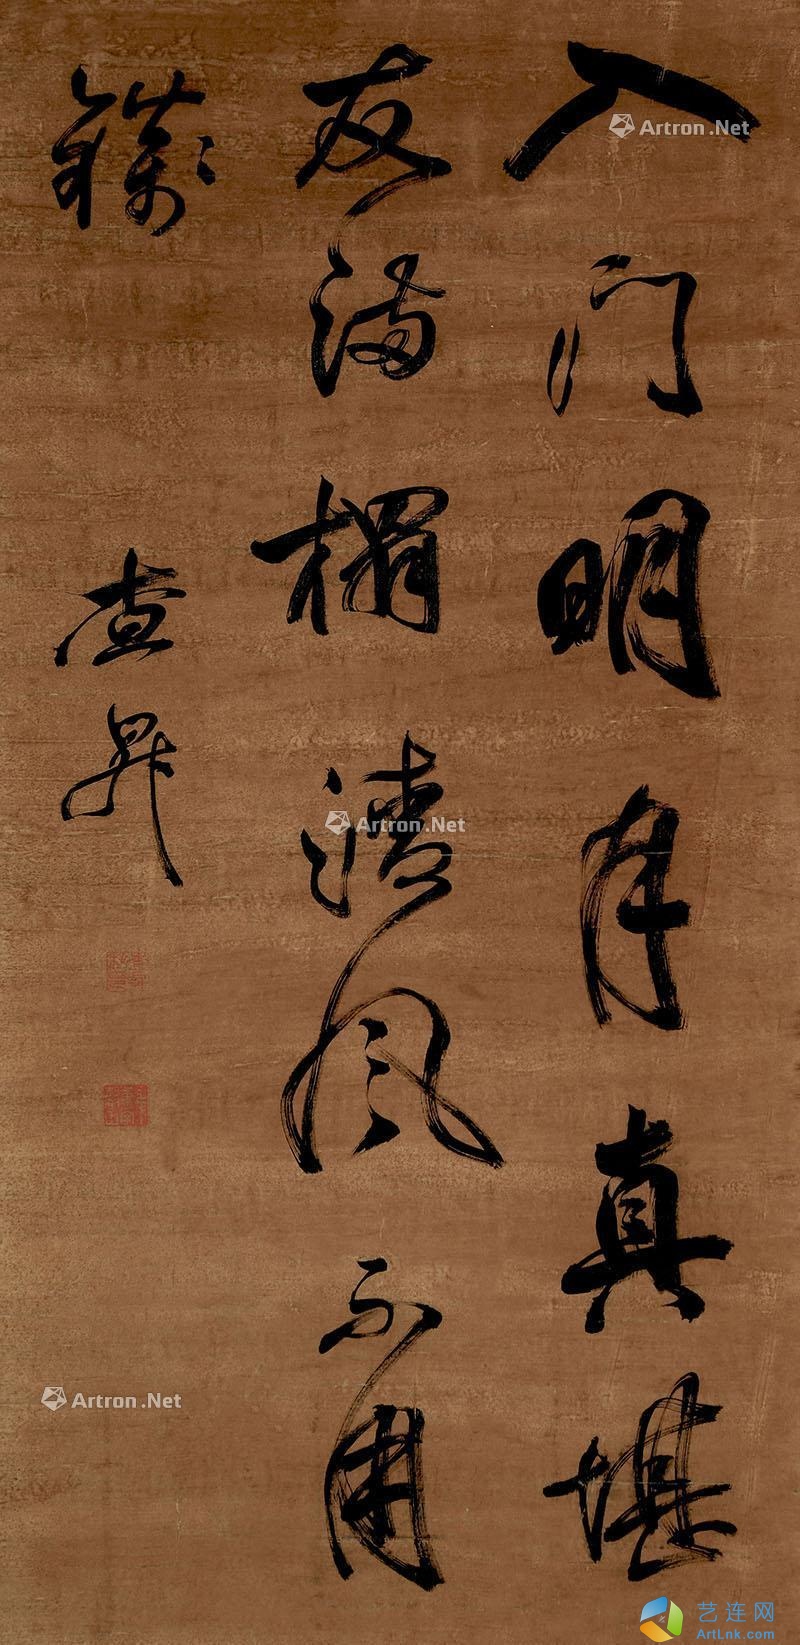 入门明月真堪
友满榻清风不用
钱
查昇
Artron.Net
Artron.Net
Artron.Net
艺连网
ArtLnk.com